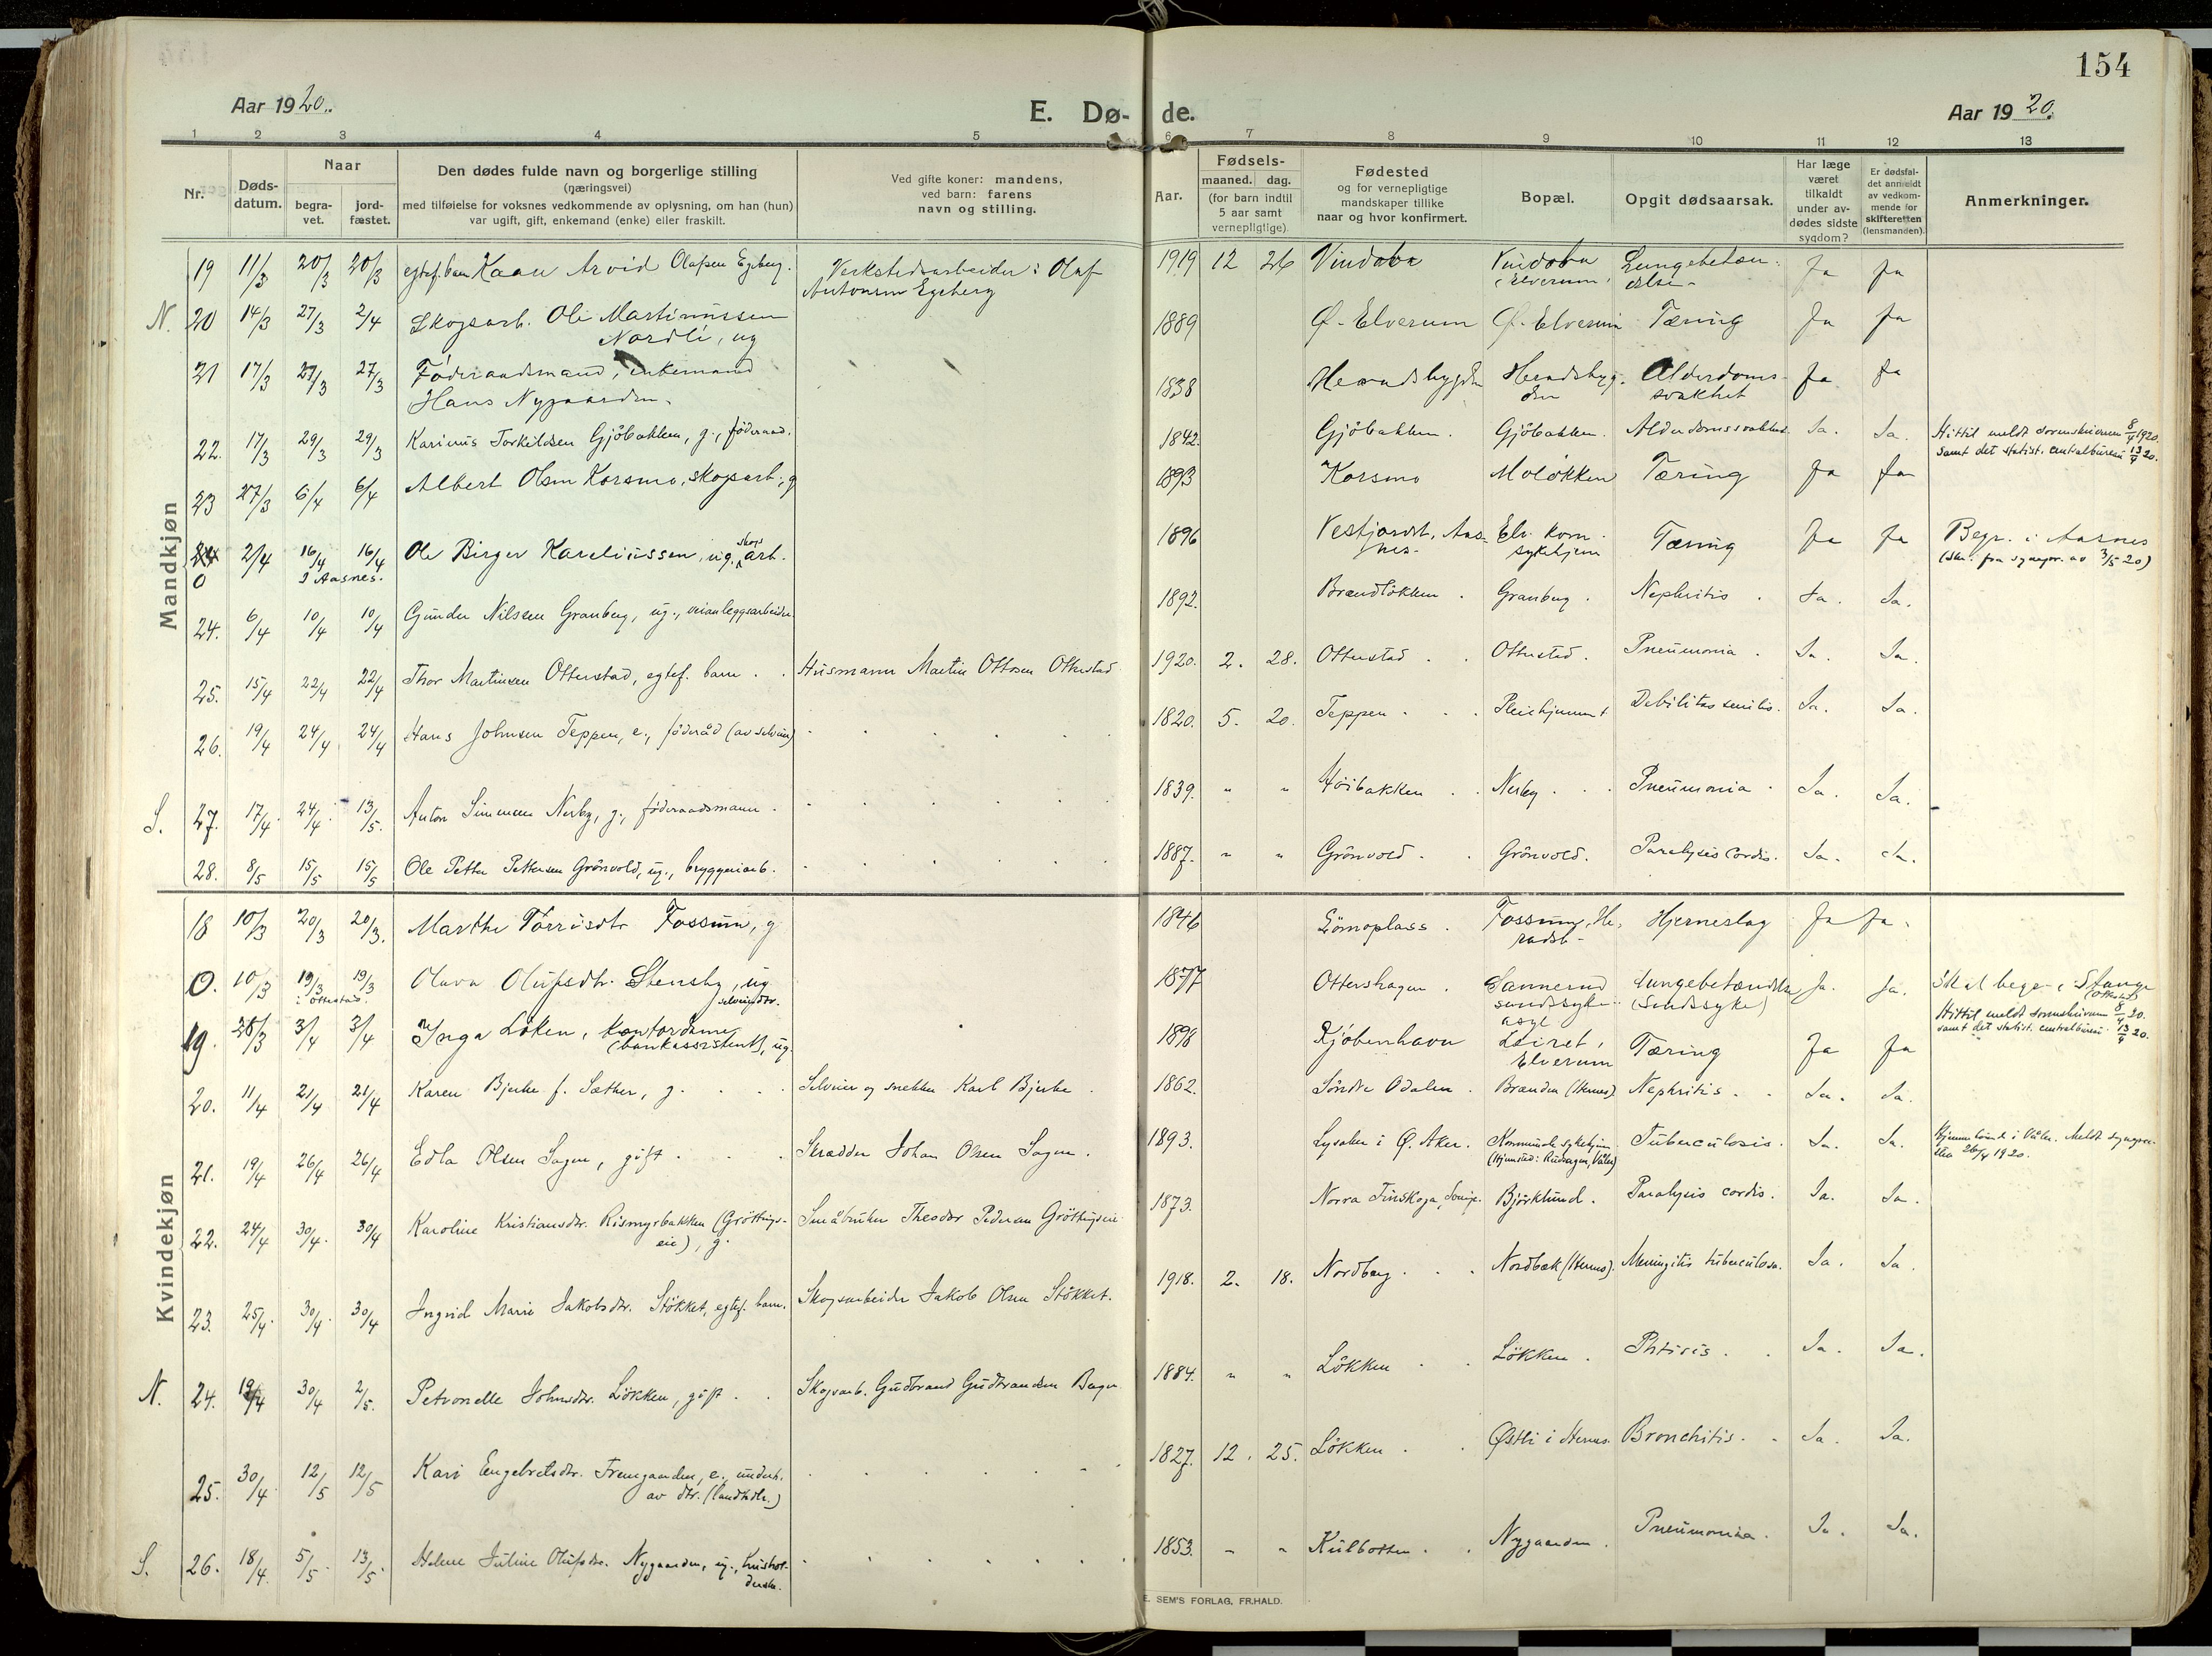 154
Aar 1920.
E. Dø-
de.
Aar 1920.
1 2 3 4 5 6 7 8 9 10 11 12 13
Nr.
Døds-
datum.
Naar
begra-
vet.
jord-
fæstet.
Den dødes fulde navn og borgerlige stilling
(næringsvei)
med tilføielse for voksnes vedkommende av oplysning, om han (hun)
var ugift, gift, enkemand (enke) eller fraskilt.
Ved gifte koner: mandens,
ved barn: farens
navn og stilling.
Aar.
Fødsels-
maaned. dag.
(for barn indtil
5 aar samt
vernepligtige).
Fødested
og for vernepligtige
mandskaper tillike
naar og hvor konfirmert.
Bopæl.
Opgit dødsaarsak.
Har læge
været
tilkaldt
under av-
dødes sidste
sygdom?
Er dødsfal-
det anmeldt
av vedkom-
mende for
skifteretten
(lensmanden).
Anmerkninger.
Mandkjøn
19 11/3 20/3 20/3 egtef. barn Kaare Arvid Olafsen Egeberg. Verkstedsarbeider: Olaf 1919 12 26 Vindobu Vindobu Lungebetæn- Ja Ja
Antonsen Egeberg Elverum delse
N. 20 14/3 27/3 2/4 Skogsarb. Ole Martinussen 1889 Ø. Elverum Ø. Elverum Tæring Ja Ja
Nordli, ug
21 17/3 27/3 27/3 Føderaadsmand, enkemand 1838 Heradsbygden Heradsbyg- Alderdoms- Ja Ja
Hans Nygaarden. den svakhet
22. 17/3 29/3 29/3 Karinus Torkildsen Gjöbakken, g., föderaad. 1842. Gjöbakken. Gjöbakken. Alderdomssvakhet. Ja. Ja. Hittil meldt sorenskriveren 8/4 1920.
samt det statist. centralbureau 13/4 20.
23 27/3 6/4 6/4 Albert Olsen Korsmo, skogsarb., g 1893 Korsmo Moløkken Tæring Ja Ja
0 2/4 16/4 16/4 Ole Birger Kareliussen, ug. skogsarb. 1896 Vestjordet, Aas- Elv. kom. Tæring Ja Ja Begr. i Aasnes
I Aasnes. nes. sykehjem (skr. fra sognepr. av 3/5 20)
24. 6/4 10/4 10/4 Gunder Nilssen Granberg, ug., veianleggsarbeider. 1892. Brændlökken. Granberg. Nephritis. Ja. Ja.
25. 15/4 22/4 22/4 Thor Martinsen Otterstad, egtef. barn. Husmann Martin Ottosen Otterstad 1920. 2. 28. Otterstad. Otterstad. Pneumonia. Ja. Ja.
26. 19/4 24/4 24/4 Hans Johnsen Teppen, e., föderåd (av selveier) 1820. 5. 20. Teppen. Pleiehjemmet Debilitas senilis. Ja. Ja.
S. 27. 17/4 24/4 13/5 Anton Simensen Nerby, g., föderaadsmann. 1839. " " Höibakken. Nerby. Pneumonia. Ja. Ja.
28. 8/5 15/5 15/5 Ole Petter Pettersen Grönvold, ug., bryggeriarb. 1887. " " Grönvold. Grönvold. Paralysis cordis. Ja. Ja.
Kvindekjøn
18 10/3 20/3 20/3. Marthe Torrisdtr Fossum, g 1846 Fossum, He- Hjerneslag Ja Ja.
radsb-
0. 10/3 19/3 19/3 Olava Olufsdtr. Stensby, ug 1877 Ottershagen. Sannerud Lungebetændelse Ja. Ja. Skal begr. i Stange
i Ottestad. selveierdtr. sindssyke- (Sindssyke) (Ottestad)
asyl Hittil meldt sorenskriveren 8/4 20.
samt det statist. centralbureau 13/4 20.
19. 3/4 3/4 Inga Løken, kontordame 1898 Kjøbenhavn Leiret, Tæring Ja Ja
(bankassistent), ug. Elverum
20. 11/4 21/4 21/4 Karen Bjerke f. Sæther, g. Selveier og snekker Karl Bjerke. 1862. Söndre Odalen. Brænden (Hernes) Nephritis. Ja. Ja.
21. 19/4 26/4 26/4 Edla Olsen Sagen, gift. Skrædder Johan Olsen Sagen. 1893. Lysaker i Ø. Aker. Kommunale sykehjem. Tuberculosis. Ja. Ja. Hjemmehörende i Våler. Meldt sogneprestin
(Hjemsted: Rudhagen, Våler) 26/4 1920.
22. 24/4 30/4. 30/4 Karoline Kristiansdtr. Rismyrbakken (Gröttings- Småbruker Theodor Pedersen Gröttingseie 1873. Norra Finskoga, Sverige. Björklund. Paralysis cordis. Ja. Ja.
eie), g.
23. 25/4. 30/4. 30/4 Ingrid Marie Jakobsdtr. Stökket, egtef. barn. Skogsarbeider Jakob Olsen Stökket. 1918. 2. 18. Nordberg. Nordbæk (Hernes). Meningitis tuberculosa. Ja. Ja.
N. 24. 19/4 30/4 2/5. Petronelle Johnsdtr. Lökken, gift. Skogsarb. Gudbrand Gudbrandsen Bagn 1884. " " Lökken. Lökken. Phtisis. Ja. Ja.
25. 30/4 12/5 12/5 Kari Engebretsdtr. Fremgaarden, e., underh. 1827. 12. 25. Lökken. Østli i Hernes. Bronchitis. Ja. Ja.
av dtr. (landhdl.)
S. 26. 18/4. 5/5. 13/5. Helene Juline Olufsdtr. Nygaarden, ug., hushol- 1853. " " Kulbotten. Nygaarden. Pneumonia. Ja. Ja.
derske.
E. SEM'S FORLAG, FR.HALD.